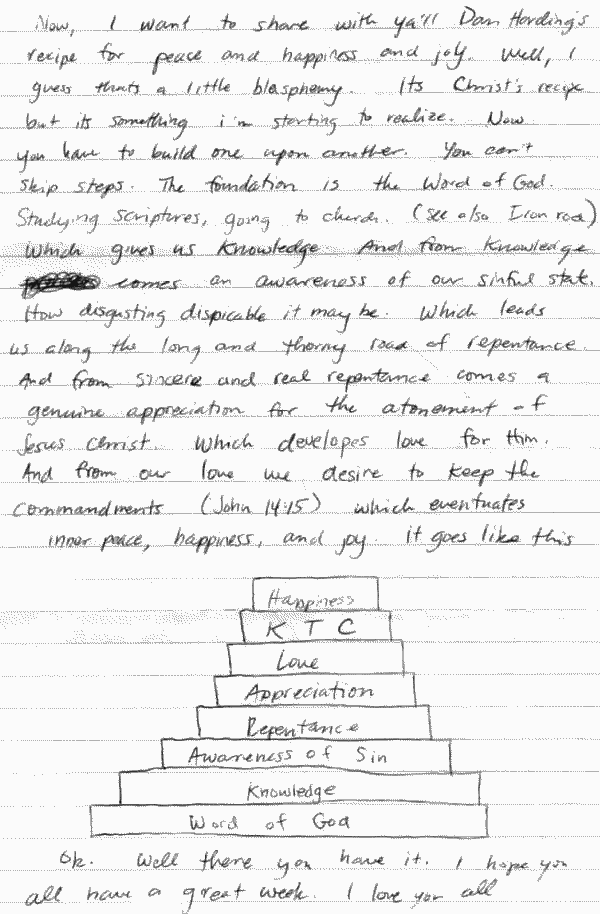 Now, I want to share with ya'll Dan Harding's
recipe for peace and happiness and joy. Well, I
guess thats a little blasphemy. Its Christ's recipe
but its something i'm starting to realize. Now
you have to build one upon another. You can't
skip steps. The foundation is the Word of God.
Studying scriptures, going to church. (see also Iron rod)
Which gives us Knowledge. And from Knowledge
comes an awareness of our sinful state.
How disgusting dispicable it may be. Which leads
us along the long and thorny road of repentance.
And from sincere and real repentance comes a
genuine appreciation for the atonement of
Jesus Christ. Which developes love for Him.
And from our love we desire to keep the
commandments (John 14:15) which eventuates
inner peace, happiness, and joy. it goes like this
Happiness
K T C
Love
Appreciation
Repentance
Awareness of Sin
Knowledge
Word of God
Ok. Well there you have it. I hope you
all have a great week. I love you all